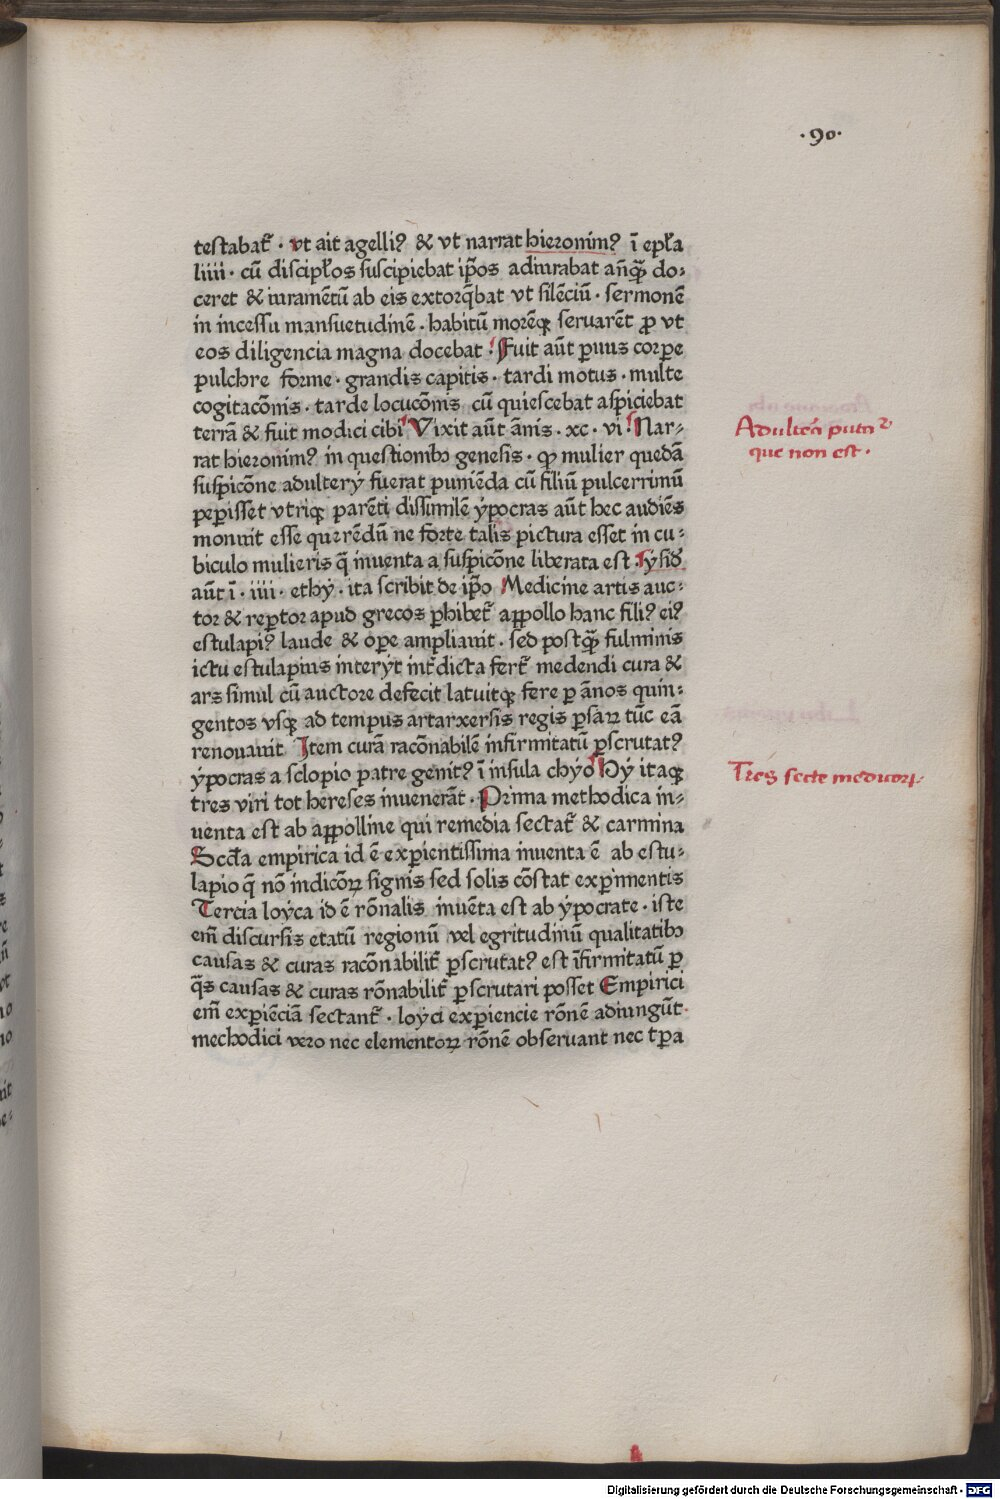 ·90·
testabat᷑ · vt ait agelliꝰ & vt narrat hieronimꝰ ī epł̄a
liiii · cū discipłos suscipiebat ip̄os adiurabat an̄q̄ꝫ do⸗
ceret & iuramētū ab eis extorq̄bat vt silēciū · sermonē
in incessu mansuetudinē · habitū morēqꝫ seruarēt ꝓ vt
eos diligencia magna docebat · Fuit aūt paruus corꝑe
pulchre forme · grandis capitis · tardi motus · multe
cogitacōnis · tarde locucōnis cū quiescebat aspiciebat
terrā & fuit modici cibi Vixit aūt ānis · xc · vi · Nar⸗
rat hieronimꝰ in questionibꝫ genesis · ꝙ mulier quedā
suspicōne adulterij fuerat puniēda cū filiū pulcerrimū
peperisset vtriqꝫ parēti dissimilē ypocras aūt hec audiēs
monuit esse querēdū ne forte talis pictura esset in cu⸗
biculo mulieris q̄ inuenta a suspicōne liberata est · ysid᷑
aūt ī · iiii · ethy · ita scribit de ip̄o Medicine artis auc⸗
tor & reꝑtor apud grecos ꝑhibet᷑ aꝑpollo hanc filiꝰ eiꝰ
estulapiꝰ laude & oꝑe ampliauit · sed postq̄ꝫ fulminis
ictu estulapius interijt int᷑dicta fert᷑ medendi cura &
ars simul cū auctore defecit latuitqꝫ fere ꝑ ānos quin⸗
gentos vsqꝫ ad tempus artarxersis regis ꝑsaꝝ tūc eā
renouauit Item curā racōnabilē infirmitatū ꝑscrutatꝰ
ypocras a sclopio patre genitꝰ ī insula chyo Hy itaqꝫ
tres viri tot hereses inuenerāt · Prima methodica in⸗
uenta est ab aꝑpolline qui remedia sectat᷑ & carmina
Scd̄a empirica id ē exꝑientissima inuenta ē ab estu⸗
lapio q̄ nō indicōꝝ signis sed solis cōstat exꝑimentis
Tercia loyca id ē rōnalis inuēta est ab ypocrate · iste
em̄ discursis etatū regionū vel egritudinū qualitatibꝫ
causas & curas racōnabilit᷑ ꝑscrutatꝰ est īfirmitatū ꝑ
q̄s causas & curas rōnabilit᷑ ꝑscrutari posset Empirici
em̄ exꝑiēciā sectant᷑ · loyci exꝑiencie rōnē adiungūt
mechodici vero nec elementoꝝ rōnē obseruant nec tꝑa
que non est ·
Tres secte medicoꝝ
Digitalisierung gefördert durch die Deutsche Forschungsgemeinschaft · DFG